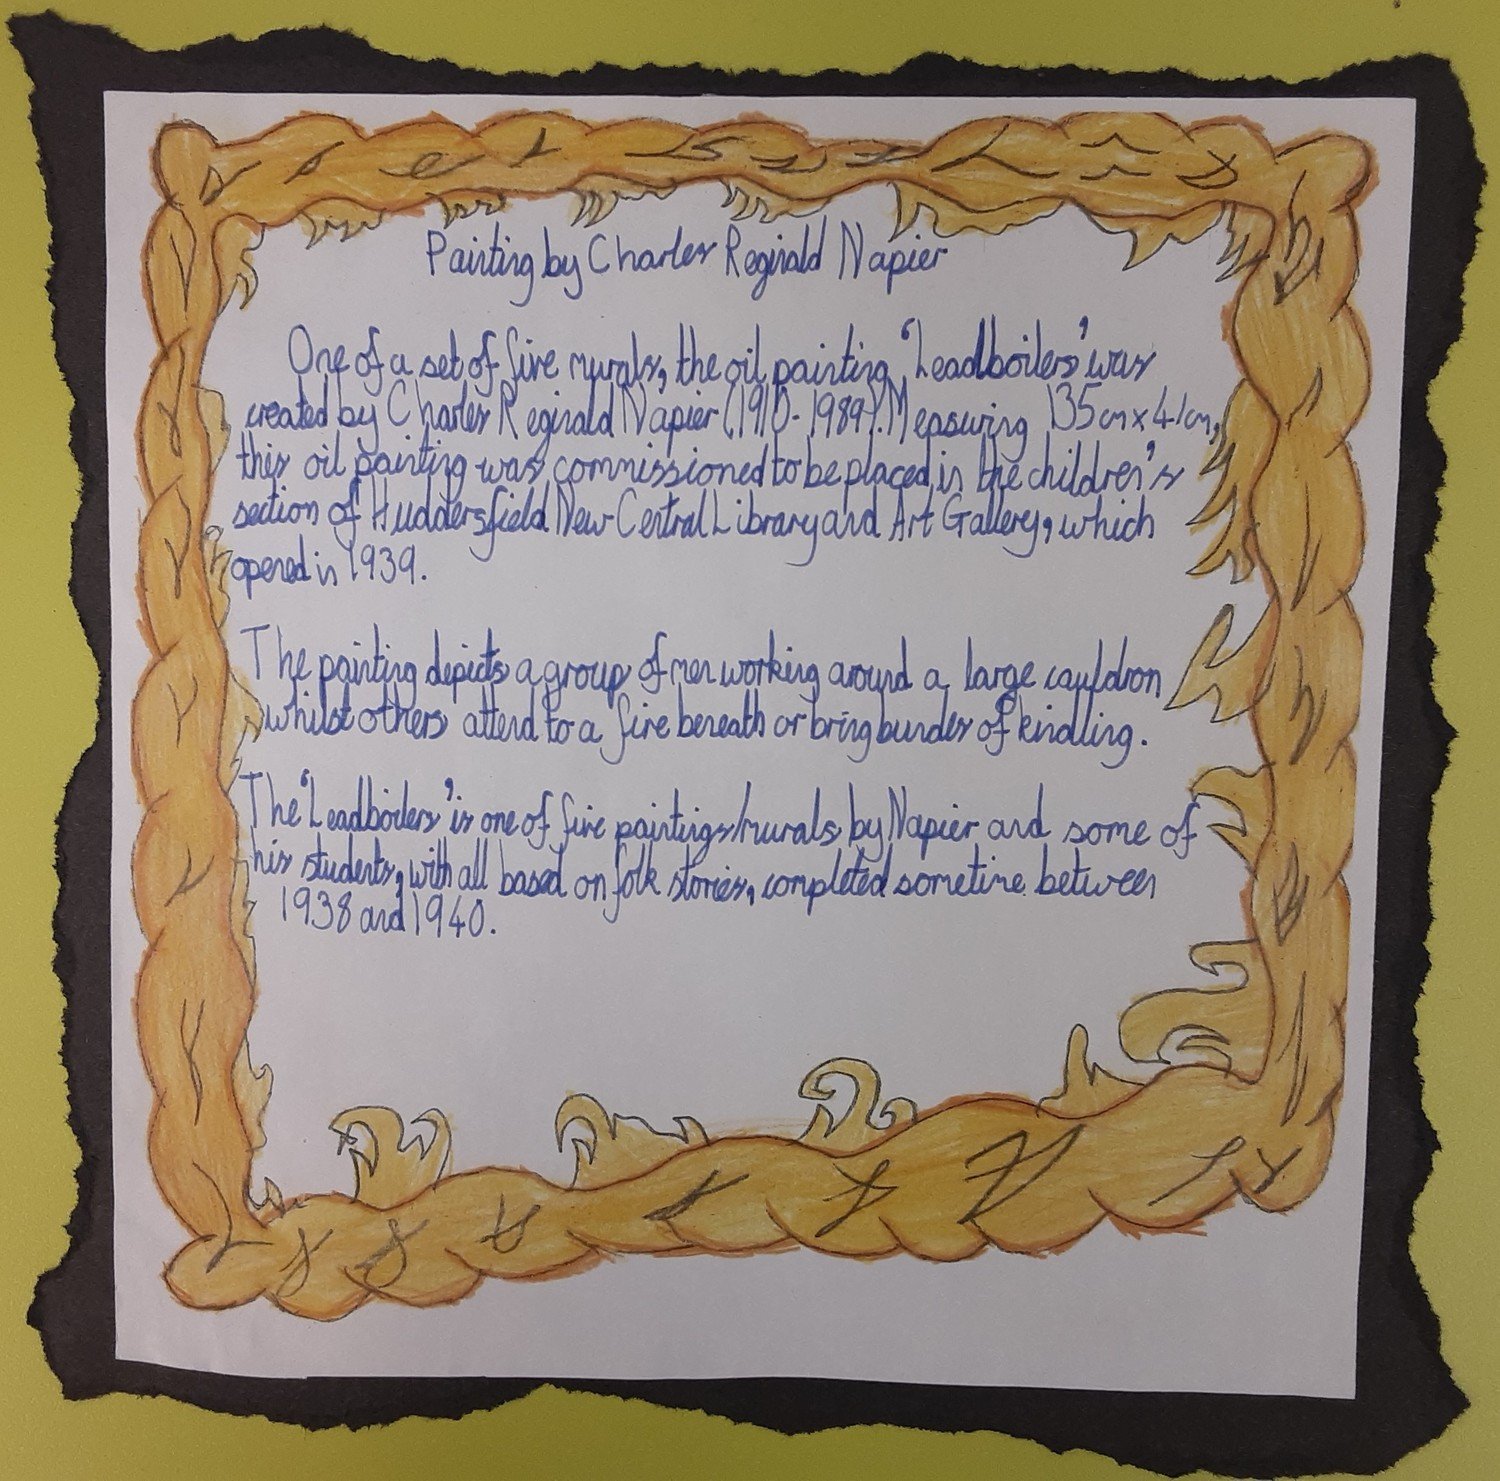 Painting by Charles Reginald Napier
One of a set of five murals, the oil painting 'Leadboilers' was
created by Charles Reginald Napier (1910-1989). Measuring 135cm x 41cm,
this oil painting was commissioned to be placed in the children's
section of Huddersfield New Central Library and Art Gallery, which
opened in 1939.
The painting depicts a group of men working around a large cauldron
whilst others attend to a fire beneath or bring bundles of kindling.
The 'Leadboilers' is one of five paintings/murals by Napier and some of
his students, with all based on folk stories, completed sometime between
1938 and 1940.